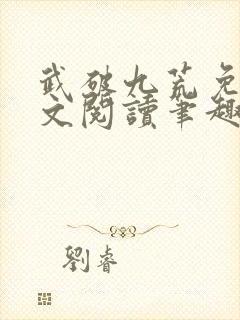 武破九荒免
文閱讀筆趣
劉睿